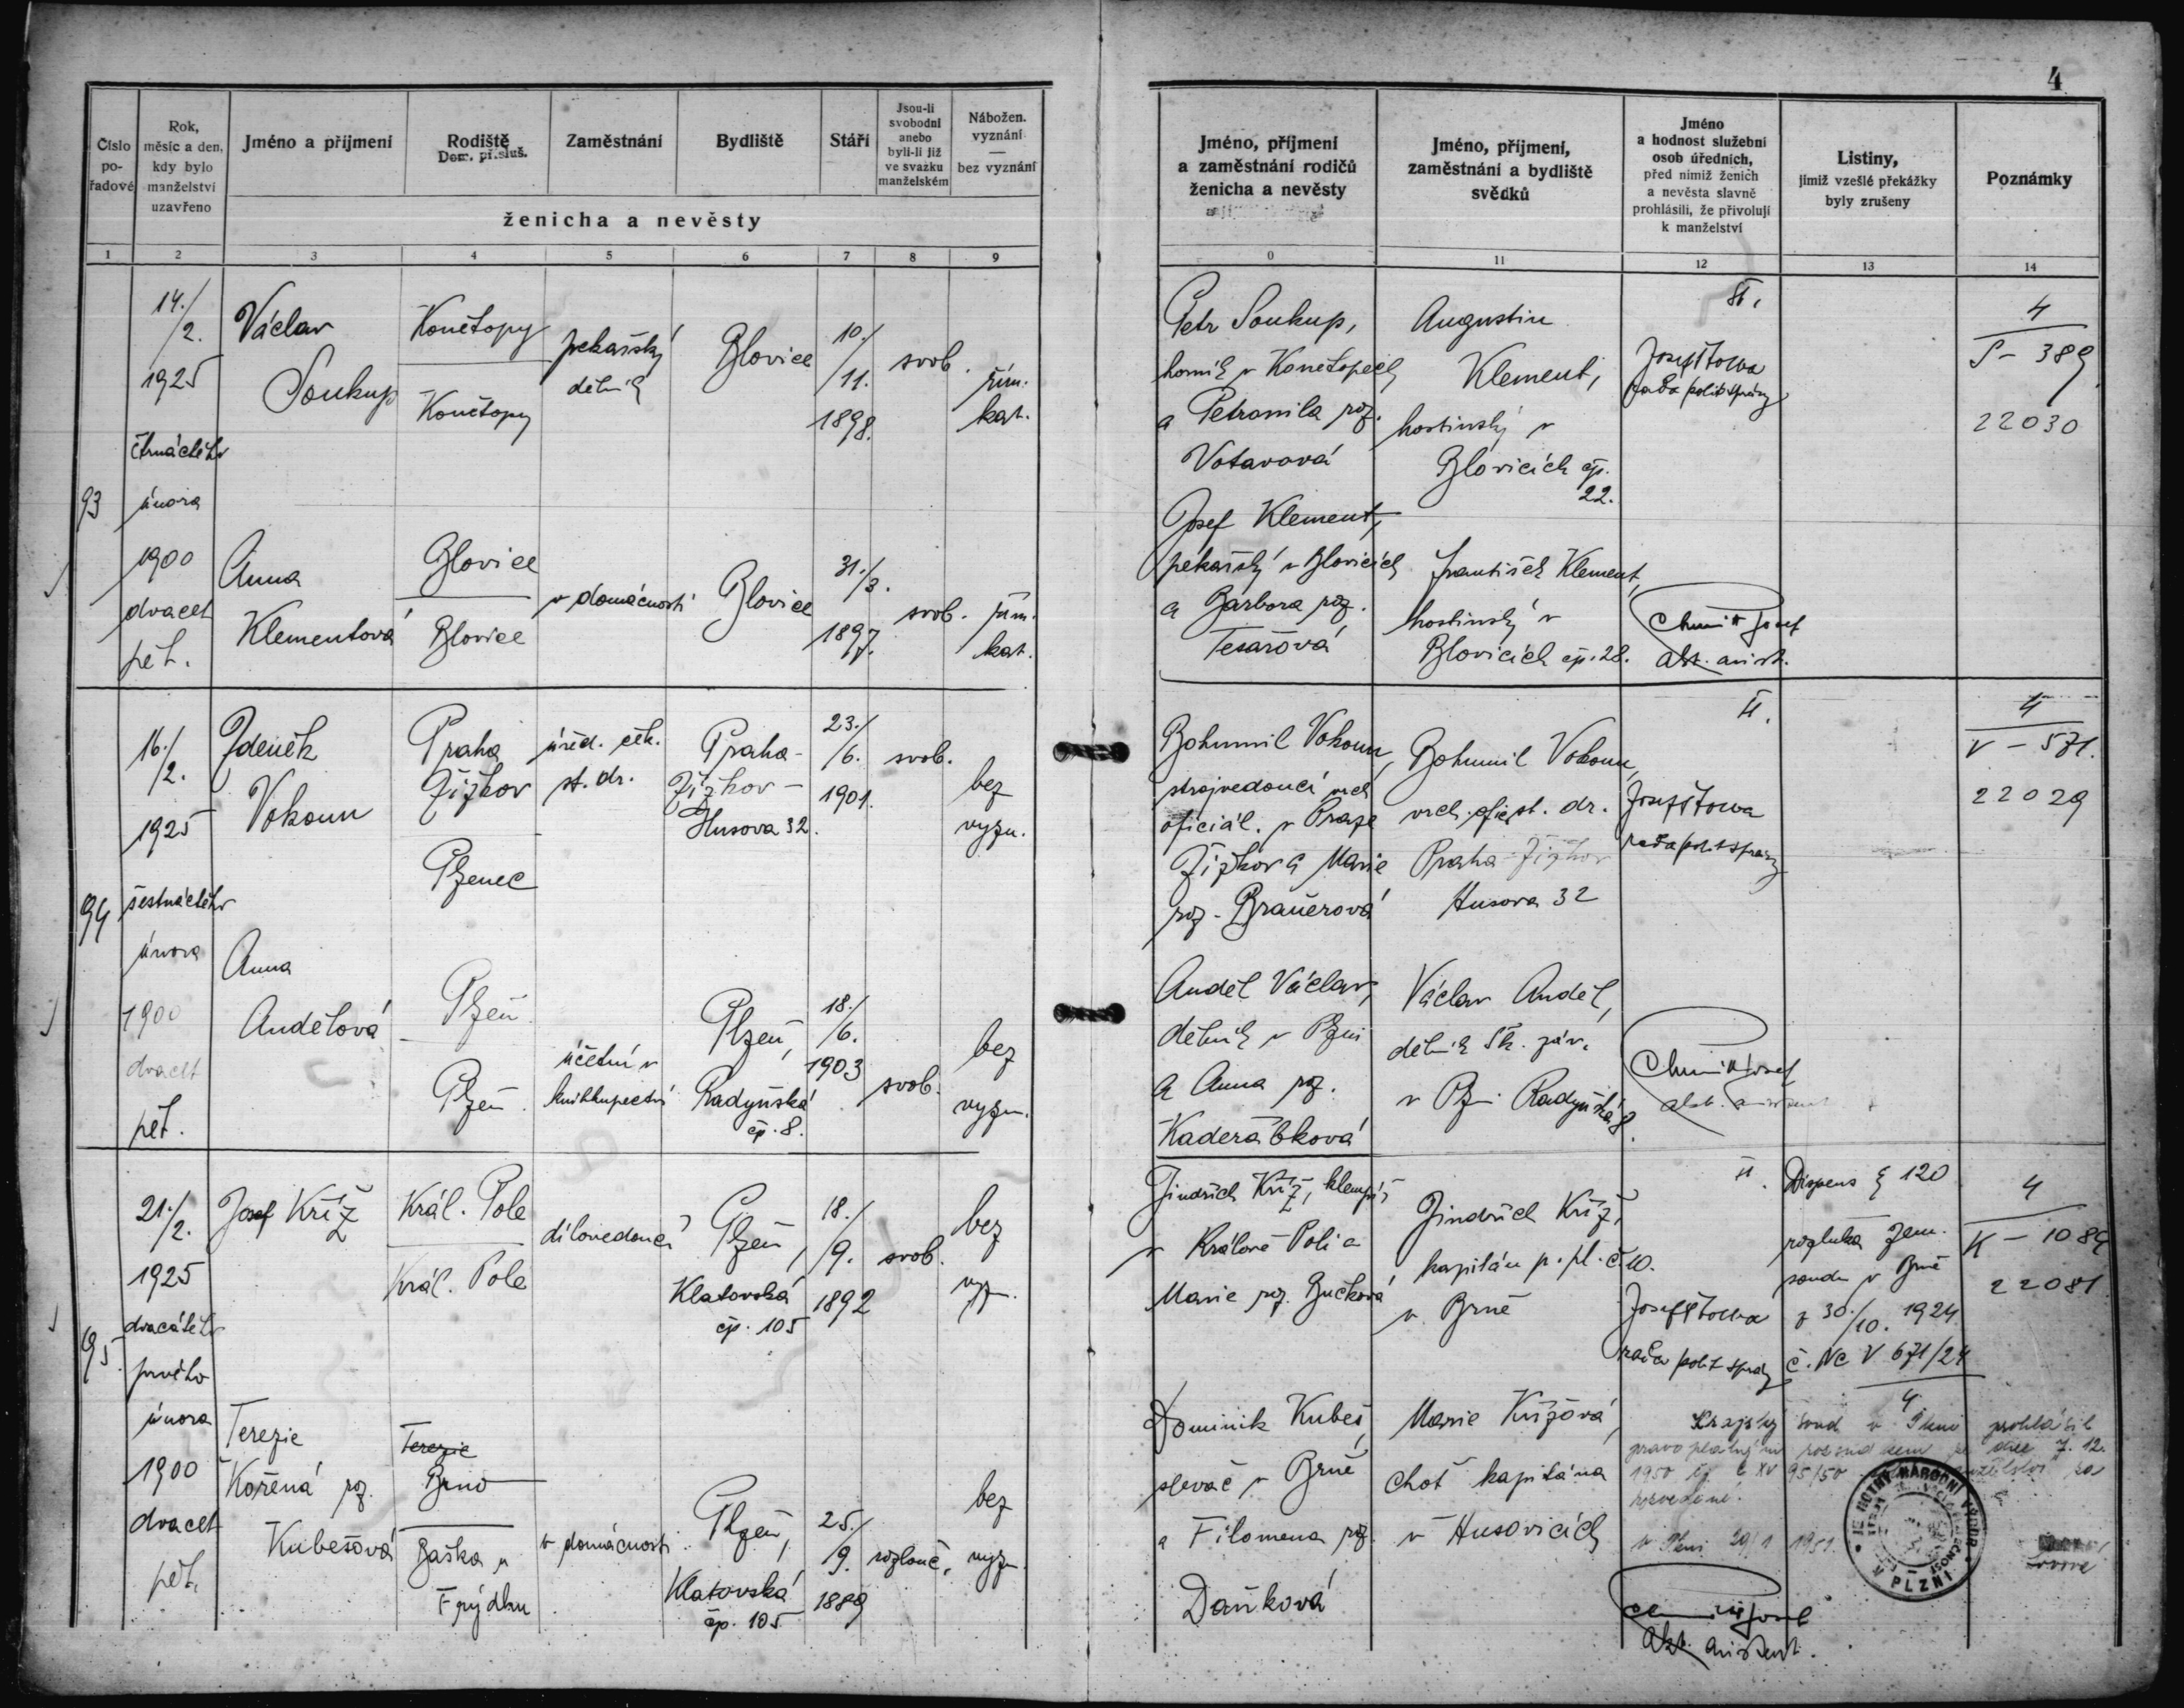 4
Číslo
po-
řadové
Rok,
měsíc a den,
kdy bylo
manželství
uzavřeno
Jméno a příjmení
Rodiště
Dom. přísluš.
Zaměstnání
Bydliště
Stáří
Jsou-li
svobodni
anebo
byli-li již
ve svazku
manželském
Nábožen.
vyznání
—
bez vyznání
ženicha a nevěsty
Jméno, příjmení
a zaměstnání rodičů
ženicha a nevěsty
Jméno, příjmení,
zaměstnání a bydliště
svědků
Jméno
a hodnost služební
osob úředních,
před nimiž ženich
a nevěsta slavně
prohlásili, že přivolují
k manželství
Listiny,
jimiž vzešlé překážky
byly zrušeny
Poznámky
1 2 3 4 5 6 7 8 9
0 11 12 13 14
93
14./
/2.
1925
čtrnáctého
února
1900
dvacet
pět.
Václav
Soukup
Končtopy
Končtopy
pekařský
dělník
Blovice
10./
/11.
1898.
svob.
řím.
kat.
Petr Soukup,
horník v Končtopech
a Petronila roz.
Votavová
Augustin
Klement,
hostinský v
Blovicích čp.
22.
Josef Šťowa
rada polit správy
4
S - 389
22030
Anna
Klementová
Blovice
Blovice
v domácnosti
Blovice
31./
/3.
1897.
svob.
řím.
kat.
Josef Klement,
pekařský v Blovicích
a Barbora roz.
Tesařová
František Klement,
hostinský v
Blovicích čp. 28.
94
16./
/2.
1925
šestnáctého
února
1900
dvacet
pět.
Zdeněk
Vokoun
Praha
Žižkov
Plzenec
úřed. ček.
st. dr.
Praha-
Žižkov -
Husova 32.
23./
/6.
1901.
svob.
bez
vyzn.
Bohumil Vokoun,
strojvedoucí vrch
oficiál. v Praze
Žižkov a Marie
roz. Braůerová
Bohumil Vokoun,
vrch. ofic. st. dr.
Praha-Žižkov
Husova 32
II.
Josef Šťowa
rada polit správy
4
V - 571.
22029
Anna
Andělová
Plzeň
Plzeň.
účetní v
knihkupectví
Plzeň,
Radyňská
čp. 8.
18./
/6.
1903
svob.
bez
vyzn.
Anděl Václav,
dělník v Plzni
a Anna roz.
Kadeřábková
Václav Anděl,
dělník Šk. záv.
v Plzni Radyňská
8.
95.
21./
/2.
1925
dvacátého
prvého
února
1900
dvacet
pět.
Josef Kříž
Král. Pole
Král. Pole
dílovedoucí
Plzeň,
Klatovská
čp. 105
18./
/9.
1892
svob.
bez
vyzn.
Jindřich Kříž, klempíř
v Králově Poli a
Marie roz. Bučková
Jindřich Kříž,
kapitán p. pl. č. 10.
v Brně
II.
Josef Šťowa
rada polit správy
Dispens § 120
rozluka zem.
soudu v Brně
z 30./10. 1924
č. Nc V 671/24
4
4
K - 1089
22081
Terezie
Kořená roz.
Kubešová
Terezie
Brno
Baška u
Frýdku
v domácnosti
Plzeň,
Klatovská
čp. 105
25./
/9.
1889
rozlouč.
bez
vyzn.
Dominik Kubeš,
slevač v Brně
a Filomena roz.
Daňková
Marie Křížová,
choť kapitána
v Husovicích
Krajský soud v Plzni prohlásil
pravoplatným rozsudkem ze dne 7. 12.
1950 čj. C XV 95/50 manželství za
rozvedené.
v Plzni 29/1 1951.
JEDNOTNÝ NÁRODNÍ VÝBOR
V PLZNI
akt. asistent.